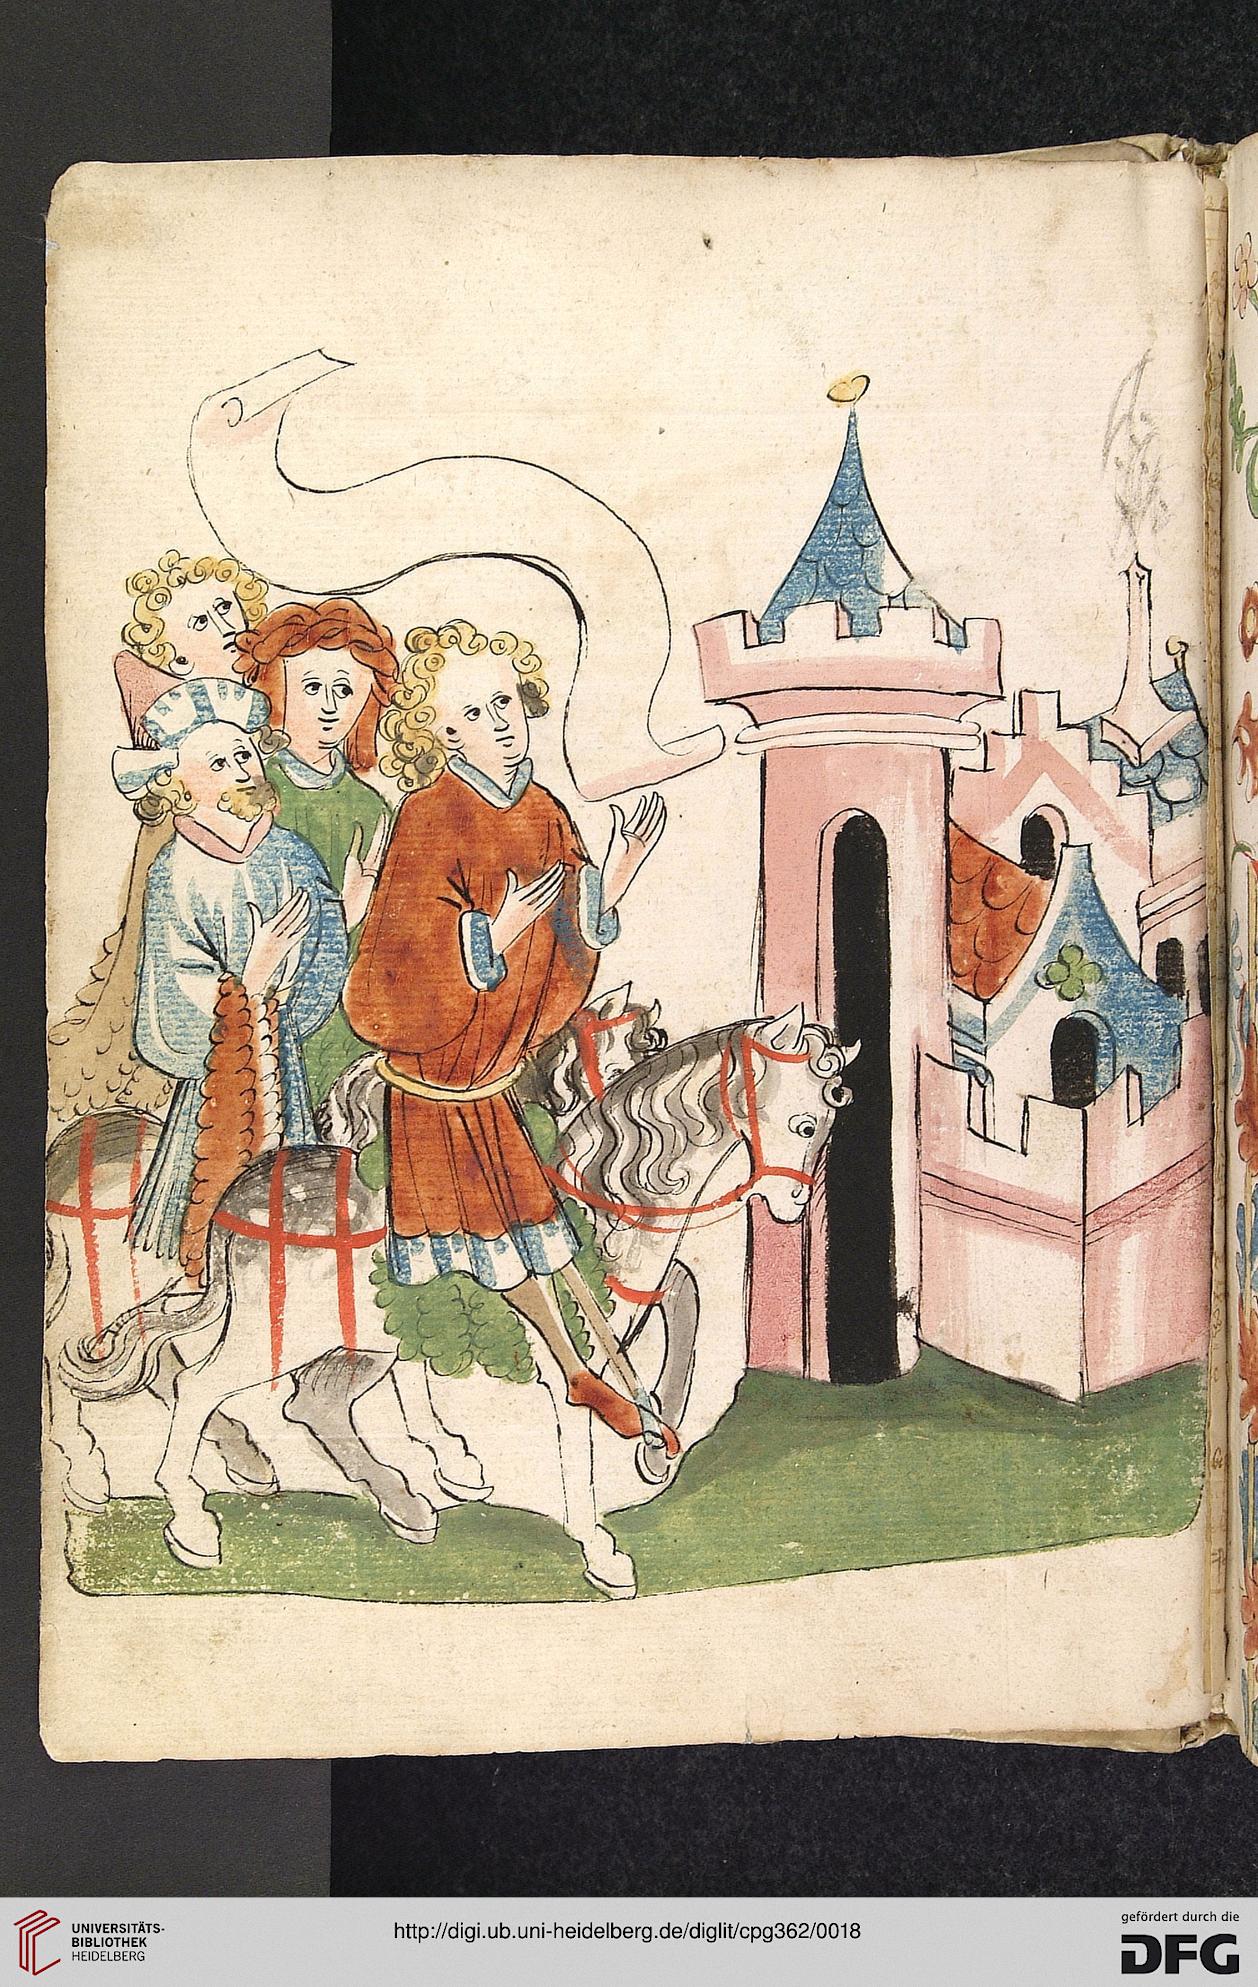 UNIVERSITÄTS-
BIBLIOTHEK
HEIDELBERG
http://digi.ub.uni-heidelberg.de/diglit/cpg362/0018
gefördert durch die
DFG